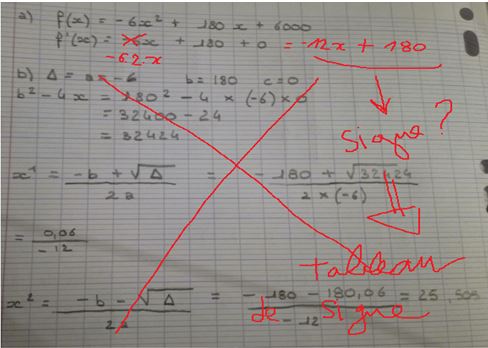 a) f(x) = -6x² + 180x + 6000
f'(x) = -6x + 180 + 0 = -12x + 180
-6 2.x
b) Δ = a = -6 b = 180 c = 0
b² - 4x = 180² - 4 × (-6) × 0
= 32400 - 24
= 32424
signe ?
x¹ = -b + √Δ / 2a = -180 + √32424 / 2 × (-6)
= 0,06 / -12
tableau
x² = -b - √Δ / 2a = -180 - 180,06 / -12 = 25,505
de signe